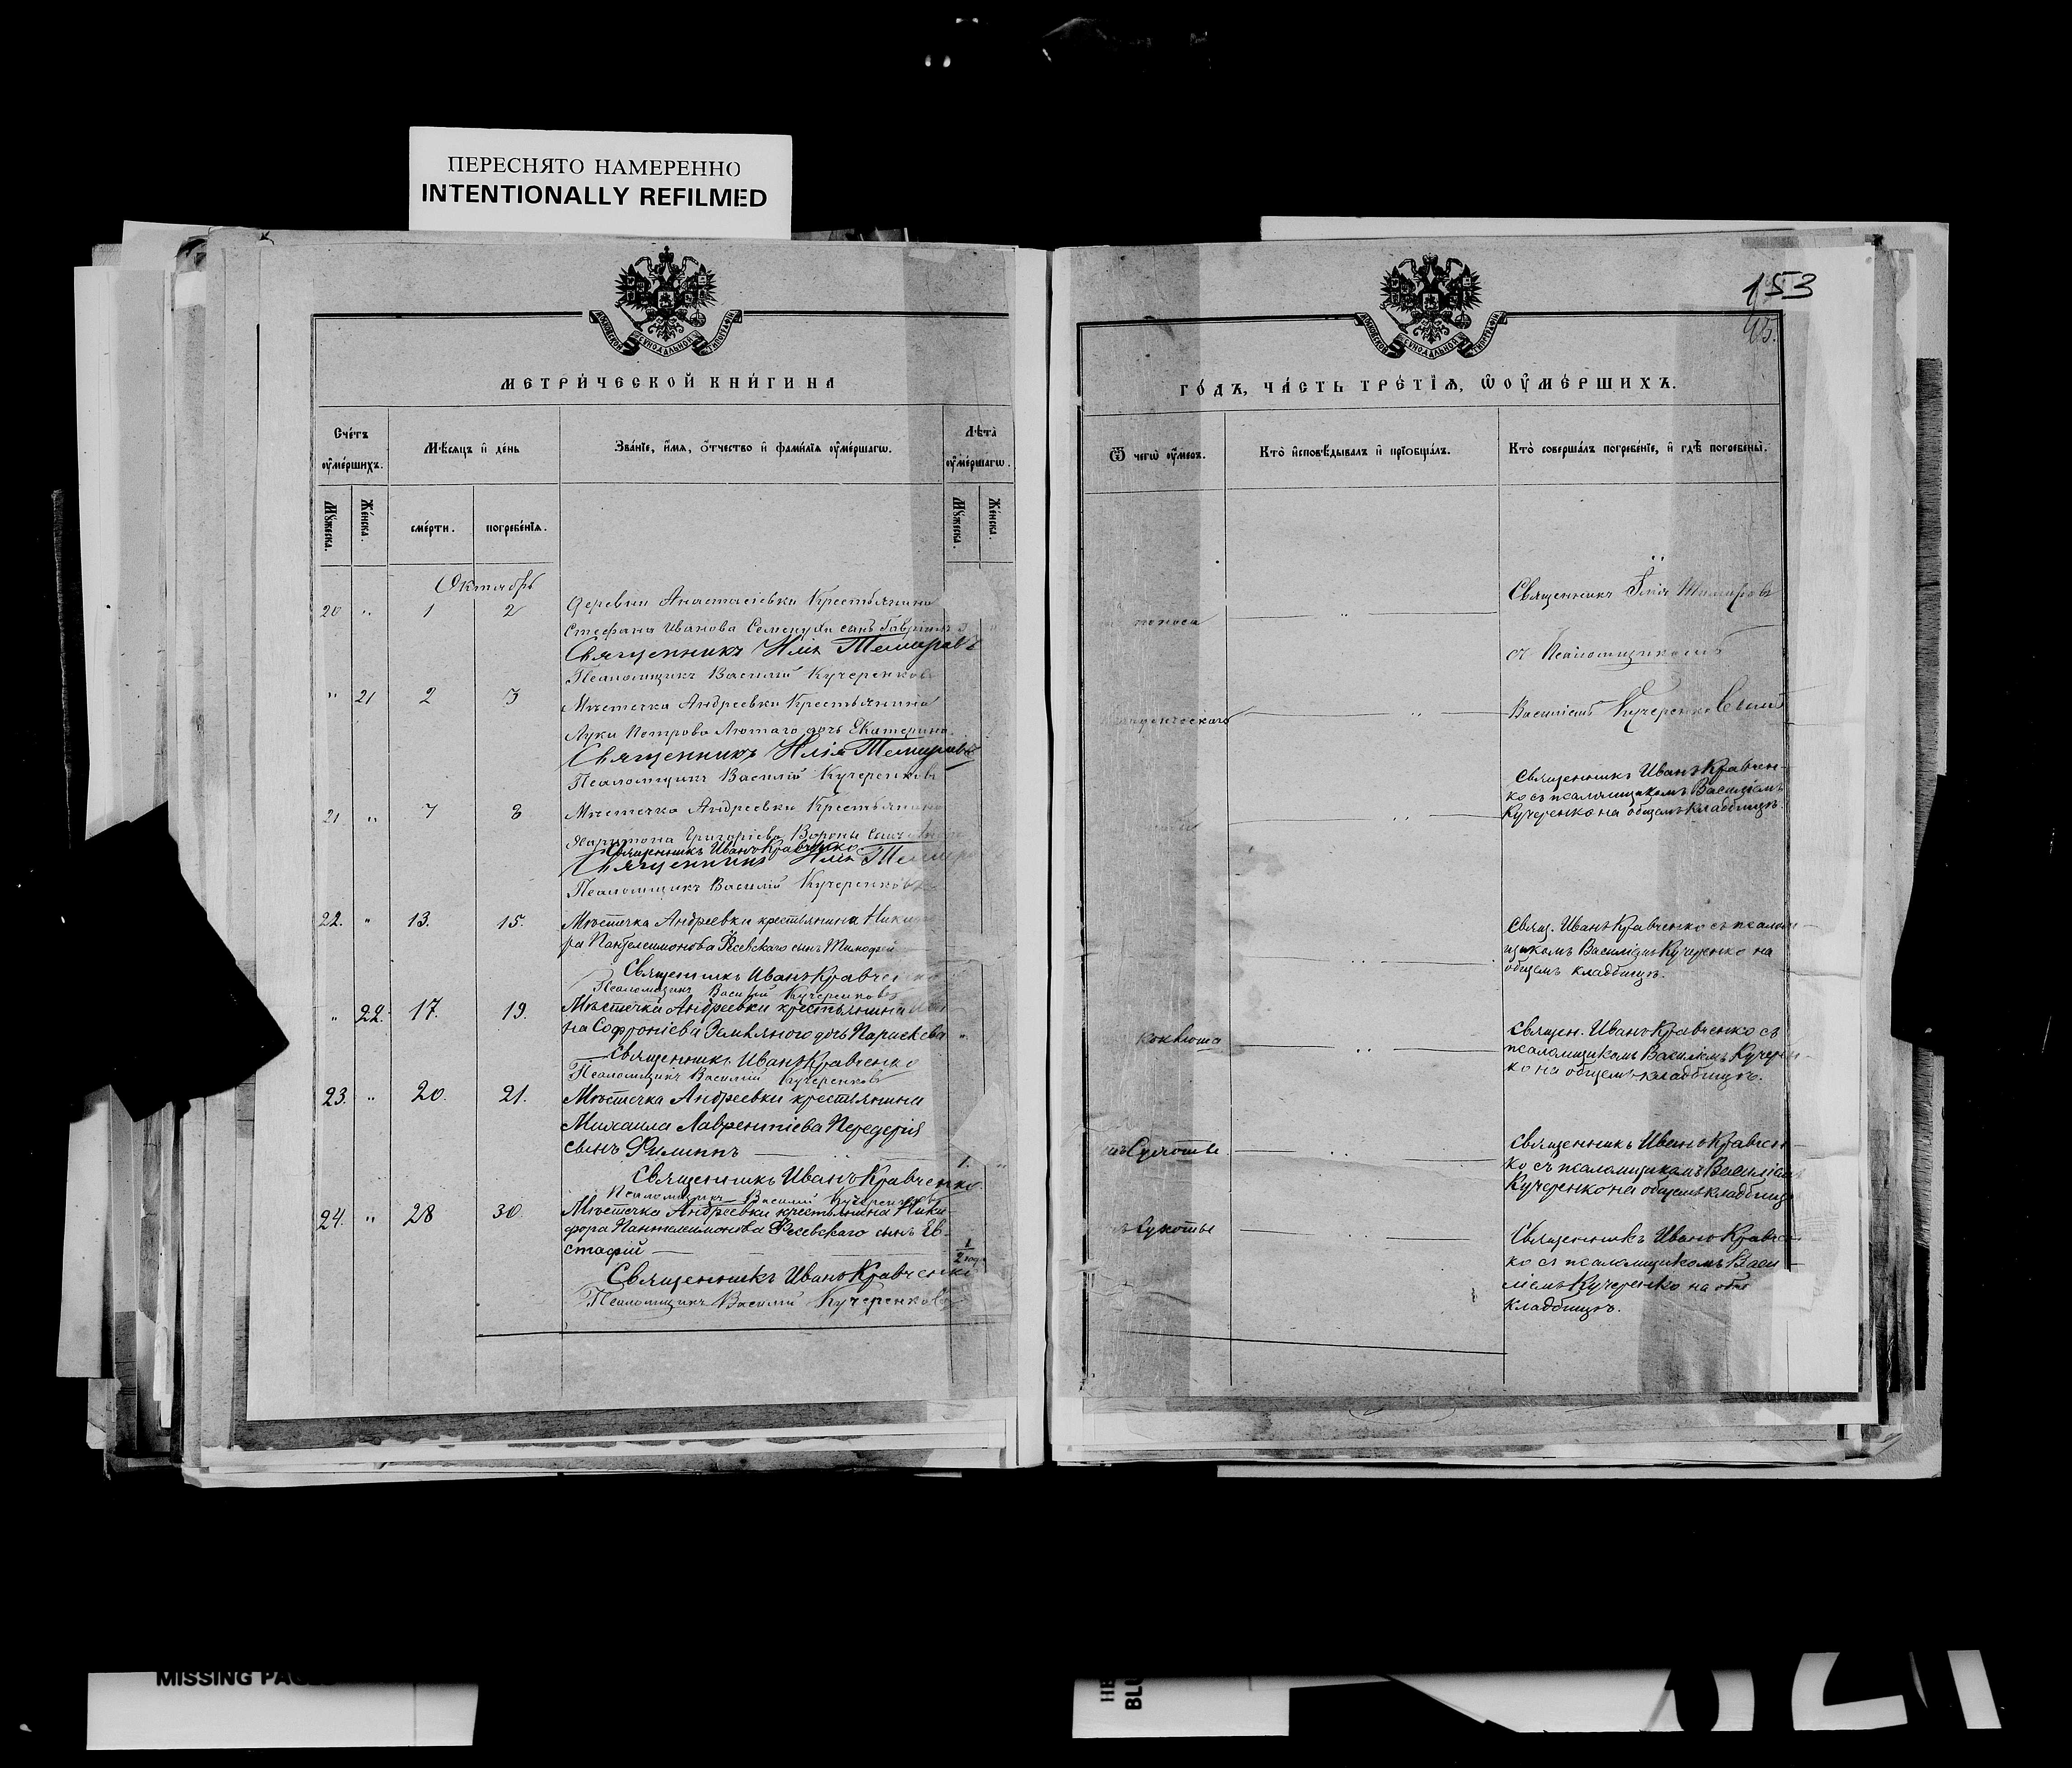 ПЕРЕСНЯТО НАМЕРЕННО
INTENTIONALLY REFILMED
153
МОСКОВСКОЙ СѴНОДАЛЬНОЙ ТИПОГРАФІИ
МЕТРИ́ЧЕСКОЙ КНИ́ГИ НА
Сче́тъ ᲂу҆ме́ршихъ.
Мѣ́сяцъ и҆ де́нь
Зва́нїе, и҆́мѧ, ѻ҆́тчество и҆ фами́лїѧ ᲂу҆ме́ршагѡ.
Лѣта̀ ᲂу҆ме́ршагѡ.
Мꙋ́жеска.
Же́нска.
сме́рти.
погребе́нїѧ.
Мꙋ́жеска.
Же́нска.
Октябрь
20 " 1 2
деревни Анастасіевки Крестьянина
Стефана Иванова сынъ Гавріилъ
Священникъ Илія Темировъ
Псаломщикъ Василій Кучеренковъ
" 21 2 3
Мѣстечка Андреевки Крестьянина
Луки Петрова Лютаго дочь Екатерина
Священникъ Илія Темировъ
Псаломщикъ Василій Кучеренковъ
21 " 7 8
Мѣстечка Андреевки Крестьянина
Харитона Григоріева Вороны сынъ
Священникъ Иванъ Кравченко
Священникъ Илія
Псаломщикъ Василій Кучеренковъ
22. " 13. 15.
Мѣстечка Андреевки крестьянина
Пантелеимонова Фесевскаго сынъ Тимофей
Священникъ Иванъ
Псаломщикъ Василій Кучеренковъ
" 22. 17. 19.
Мѣстечка Андреевки крестьянина
на Софроніева Землянаго дочь Параскева "
Священникъ Иванъ Кравченко
Псаломщикъ Василій Кучеренковъ
23. " 20. 21.
Мѣстечка Андреевки крестьянина
Михаила Лаврентіева Передерія
сынъ Филиппъ 1. "
Священникъ Иванъ Кравченко
Псаломщикъ Василій Кучеренковъ
24. " 28 30.
Мѣстечка Андреевки крестьянина Ники-
фора Пантелеимонова Фесевскаго сынъ Ев-
стафій 1/2 год
Священникъ Иванъ Кравченко
Псаломщикъ Василій Кучеренковъ
ГО́ДЪ, ЧА́СТЬ ТРЕ́ТЇѦ, Ѡ ОУ҆МЕ́РШИХЪ.
Ѿ чегѡ̀ ᲂу҆́меръ.
Кто̀ и҆сповѣ́дывалъ и҆ прїѻбща́лъ.
Кто̀ соверша́лъ погребе́нїе, и҆ гдѣ̀ погребены̀.
поноса "
Священникъ Илія Темировъ
съ Псаломщикомъ
Василіемъ Кучеренковымъ
"
"
Священникъ Иванъ Кравчен-
ко съ псаломщикомъ Василіемъ
Кучеренко на общемъ кладбищѣ.
"
Свящ. Иванъ Кравченко съ псалом-
щикомъ Василіемъ Кучеренко на
общемъ кладбищѣ.
коклюша "
Священ. Иванъ Кравченко съ
псаломщикомъ Василіемъ Кучерен-
ко на общемъ кладбищѣ.
Сухотье "
Священникъ Иванъ Кравчен-
ко съ псаломщикомъ Василіемъ
Кучеренко на общемъ кладбищѣ
Сухотье "
Священникъ Иванъ Кравчен-
ко съ псаломщикомъ Васи-
ліемъ Кучеренко на общ
кладбищѣ.
MISSING PAGES